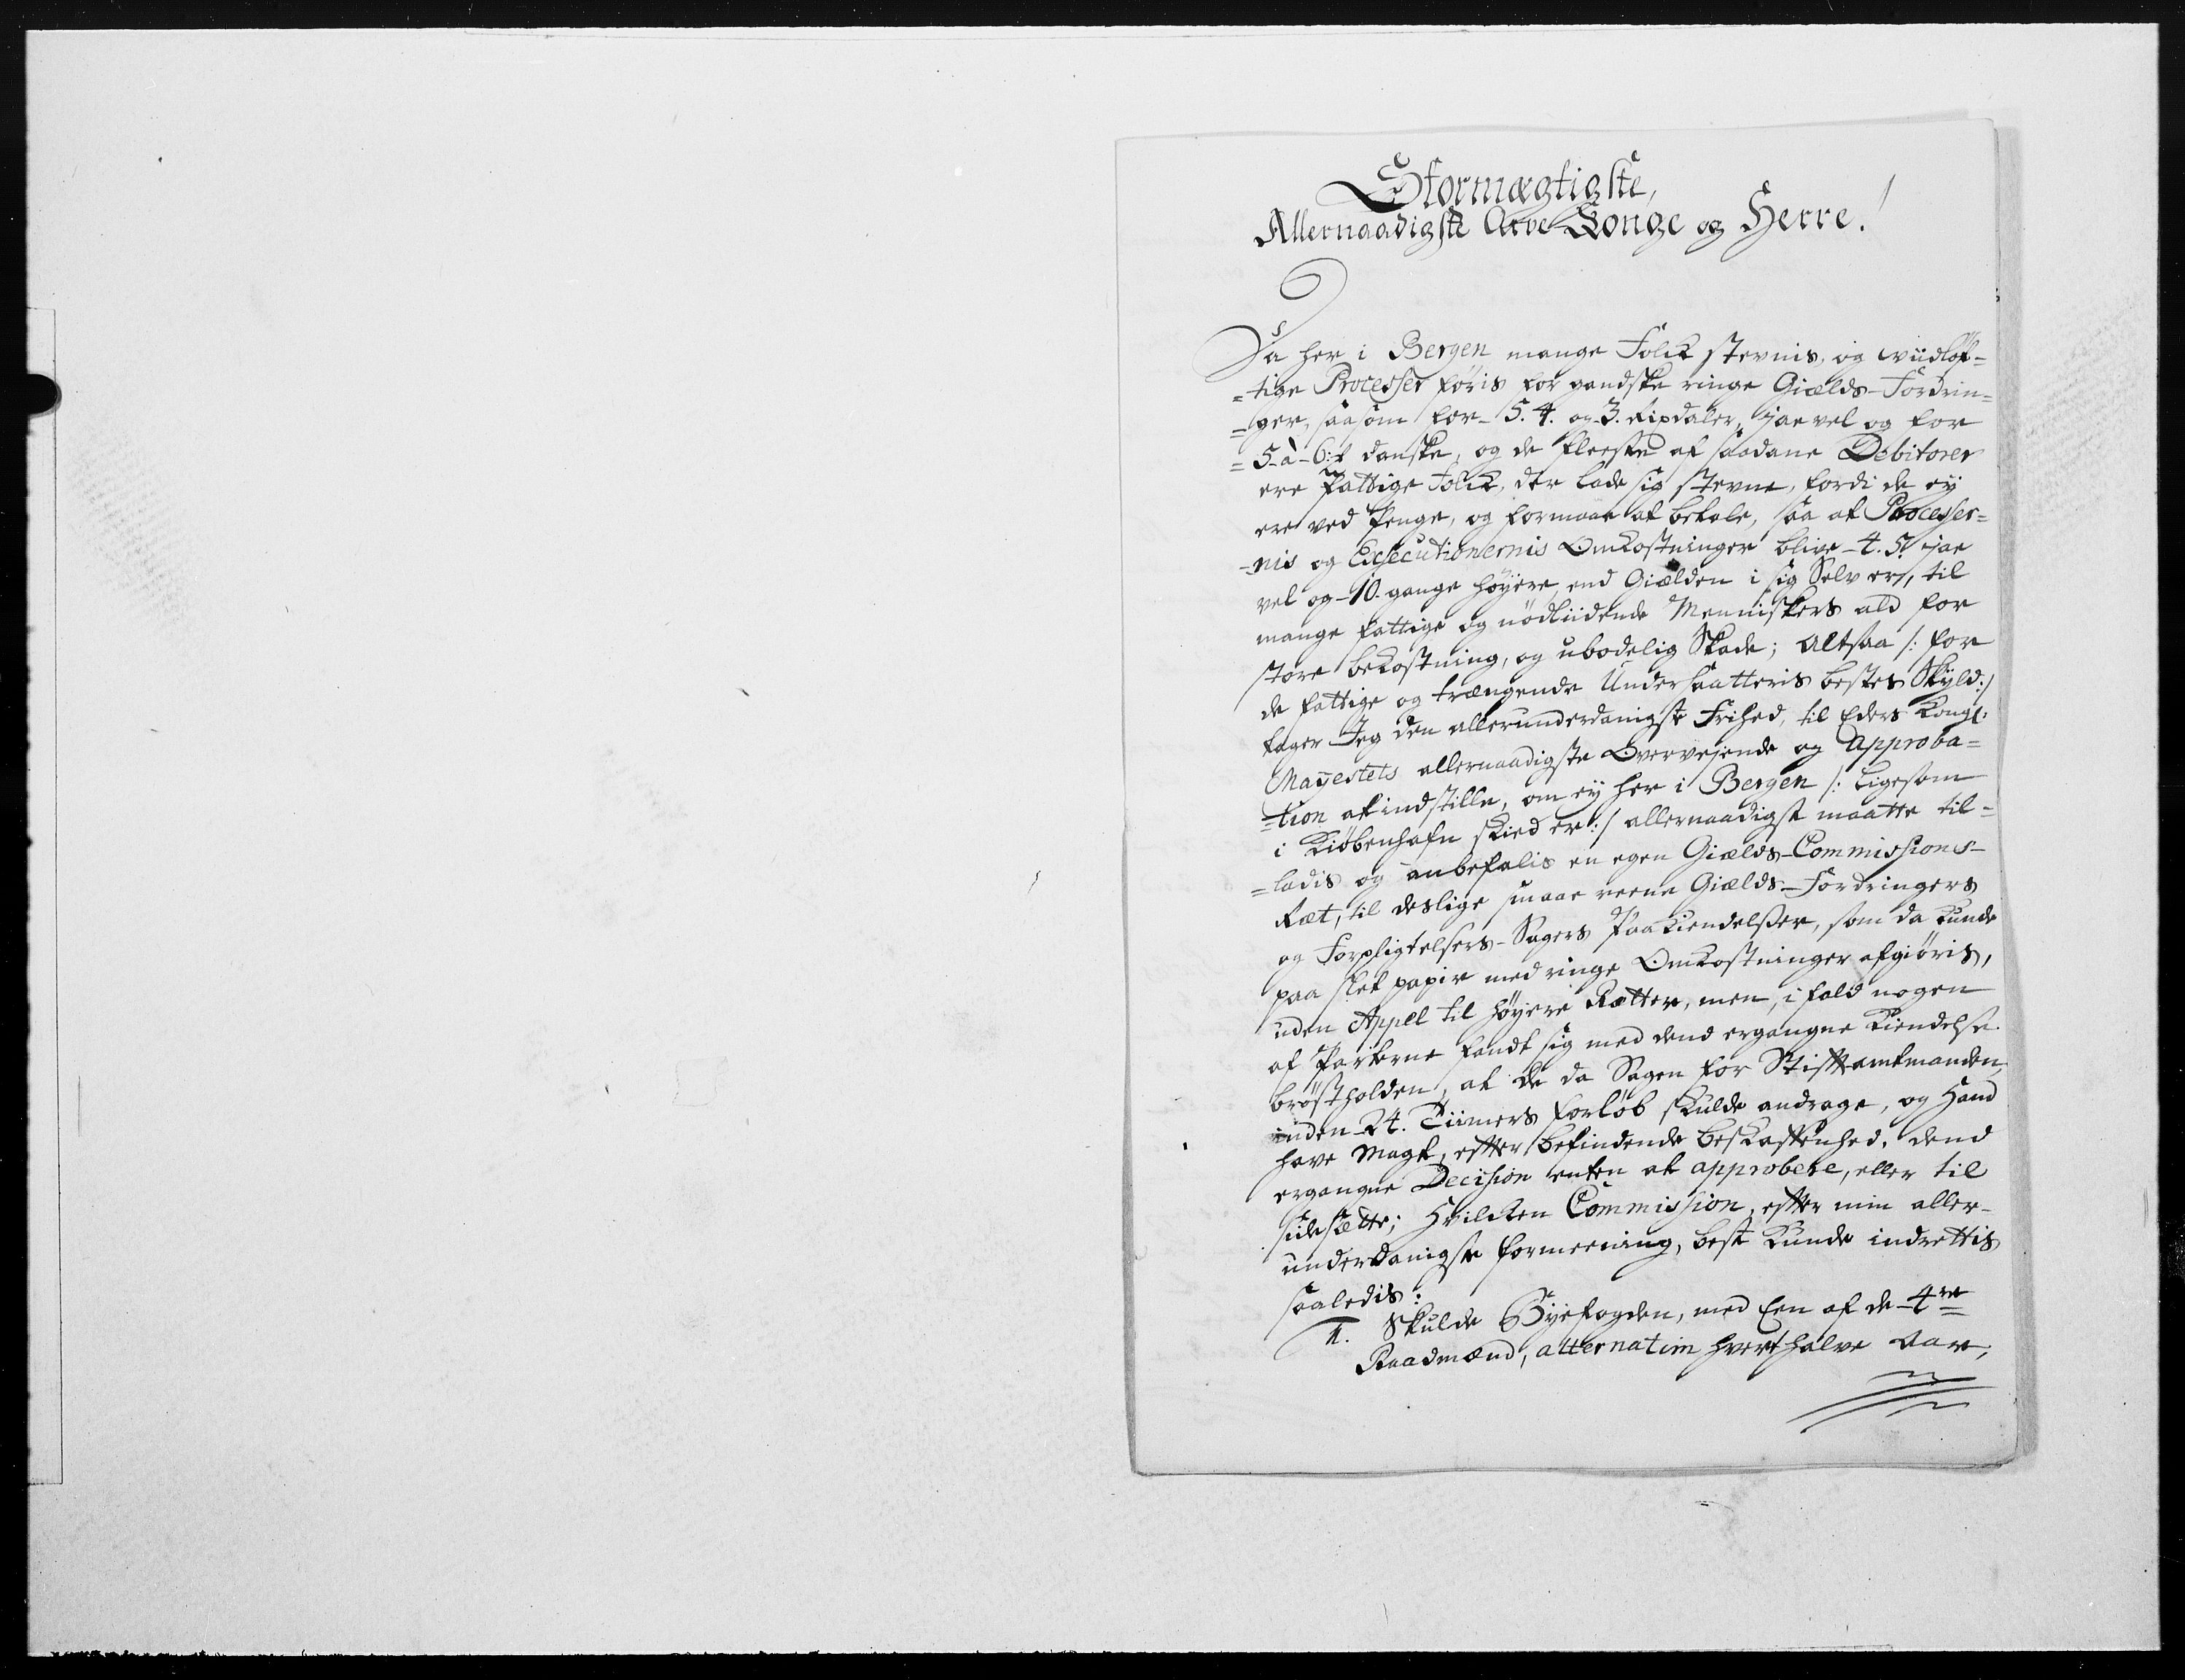 Stormægtigste,
Allernaadigste Arve Konge og Herre!
Da her i Bergen mange Folck stevnis, og viidløf-
=tige Processer føris for gandske ringe Giælds-Fordrin=
=ger, saasom for 5. 4. og 3. Rixdaler, jae vel og for
= 5 à 6 :# danske, og de fleeste af saadane Debitorer
ere fattige Folck, der lade sig stevne, fordi de ey
ere ved Penge, og formaae at betale, saa at Processer=
=nis og Executionernis Omkostninger blive 4. 5. jae
vel og 10. gange høyere, end Giælden i sig Selv er, til
mange fattige og nødliidende Menniskers ald for
store bekostning, og ubodelig Skade; Altsaa /: for
de fattige og trængende Undersaatteris bestes Skyld :/
tager Jeg den allerunderdanigste Frihed, til Eders Kongl:
Mayestets allernaadigste Overvejende og approba=
=tion at indstille, om ey her i Bergen /: ligesom
i Kiøbenhafn skied er :/ allernaadigst maatte til=
=ladis og anbefalis en egen Giælds-Commissions-
Ræt, til deslige smaae reene Giælds-Fordringers
og Forpligtelsers-Sagers Paakiendelser, som da kunde
paa slet papir med ringe Omkostninger afgiøris,
uden Appel til høyere Rætter, men, i fald nogen
af Parterne fandt sig med dend ergangne Kiendelse
brøstholden, at de da Sagen for Stiftamtmanden,
inden 24. Tiimers forløb skulde andrage, og Hand
have Magt, efter befindende beskaffenhed, dend
ergangne Decision enten at approbere, eller til
sidesætte; Hvilcken Commission, efter min aller-
underdanigste formeening, best kunde indrettis
saaledis:
1. Skulde Byefogden, med Een af de 4re
Raadmænd, alternatim hvert halve Aar,